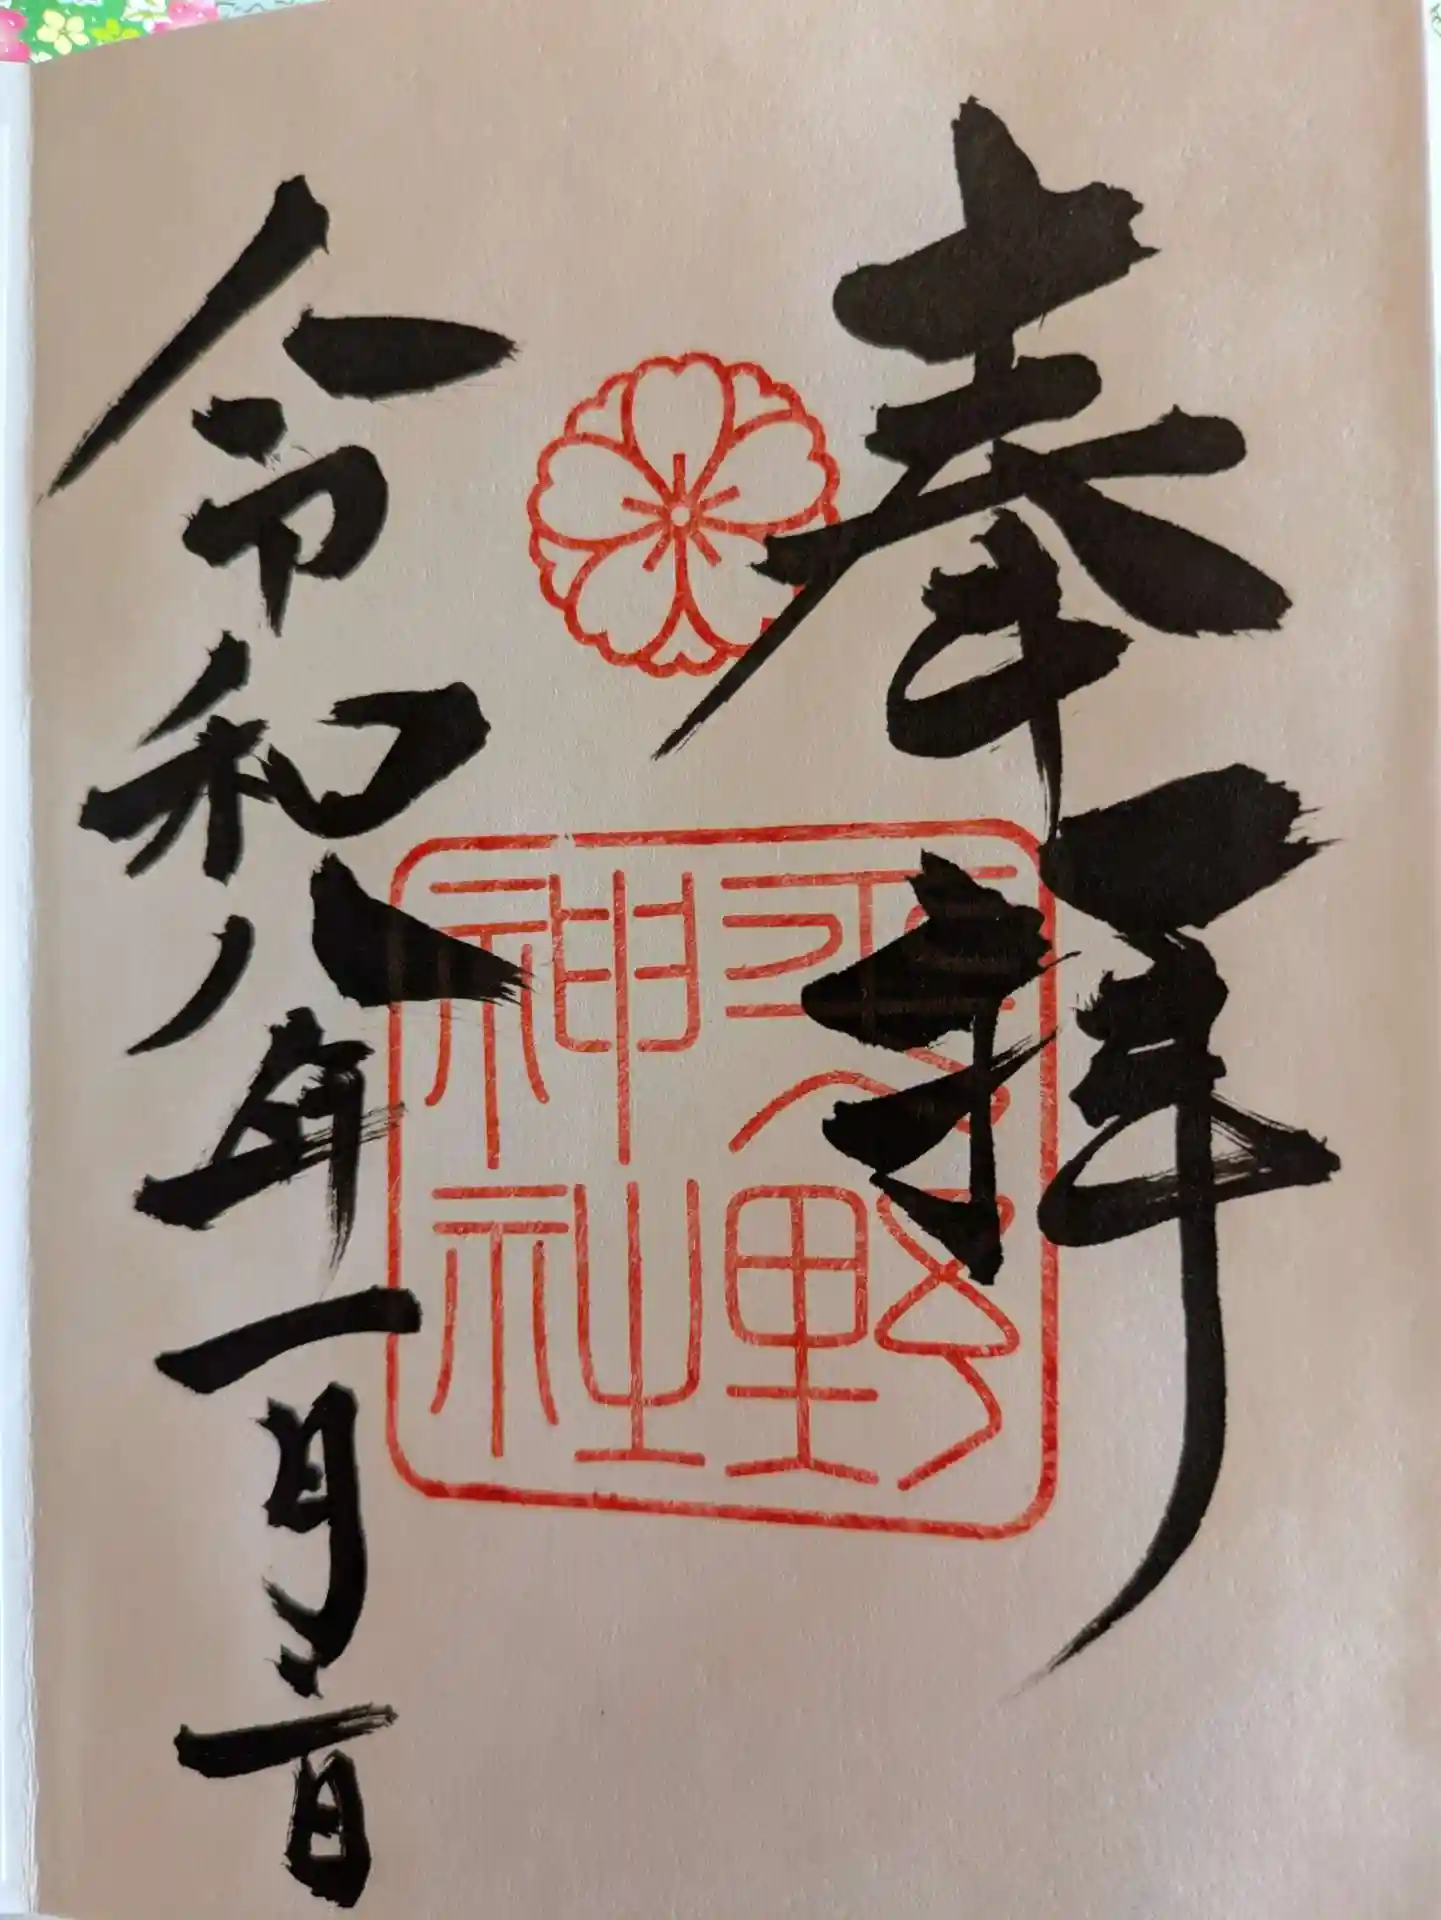 奉拝
平野
神社
令和八年一月二日